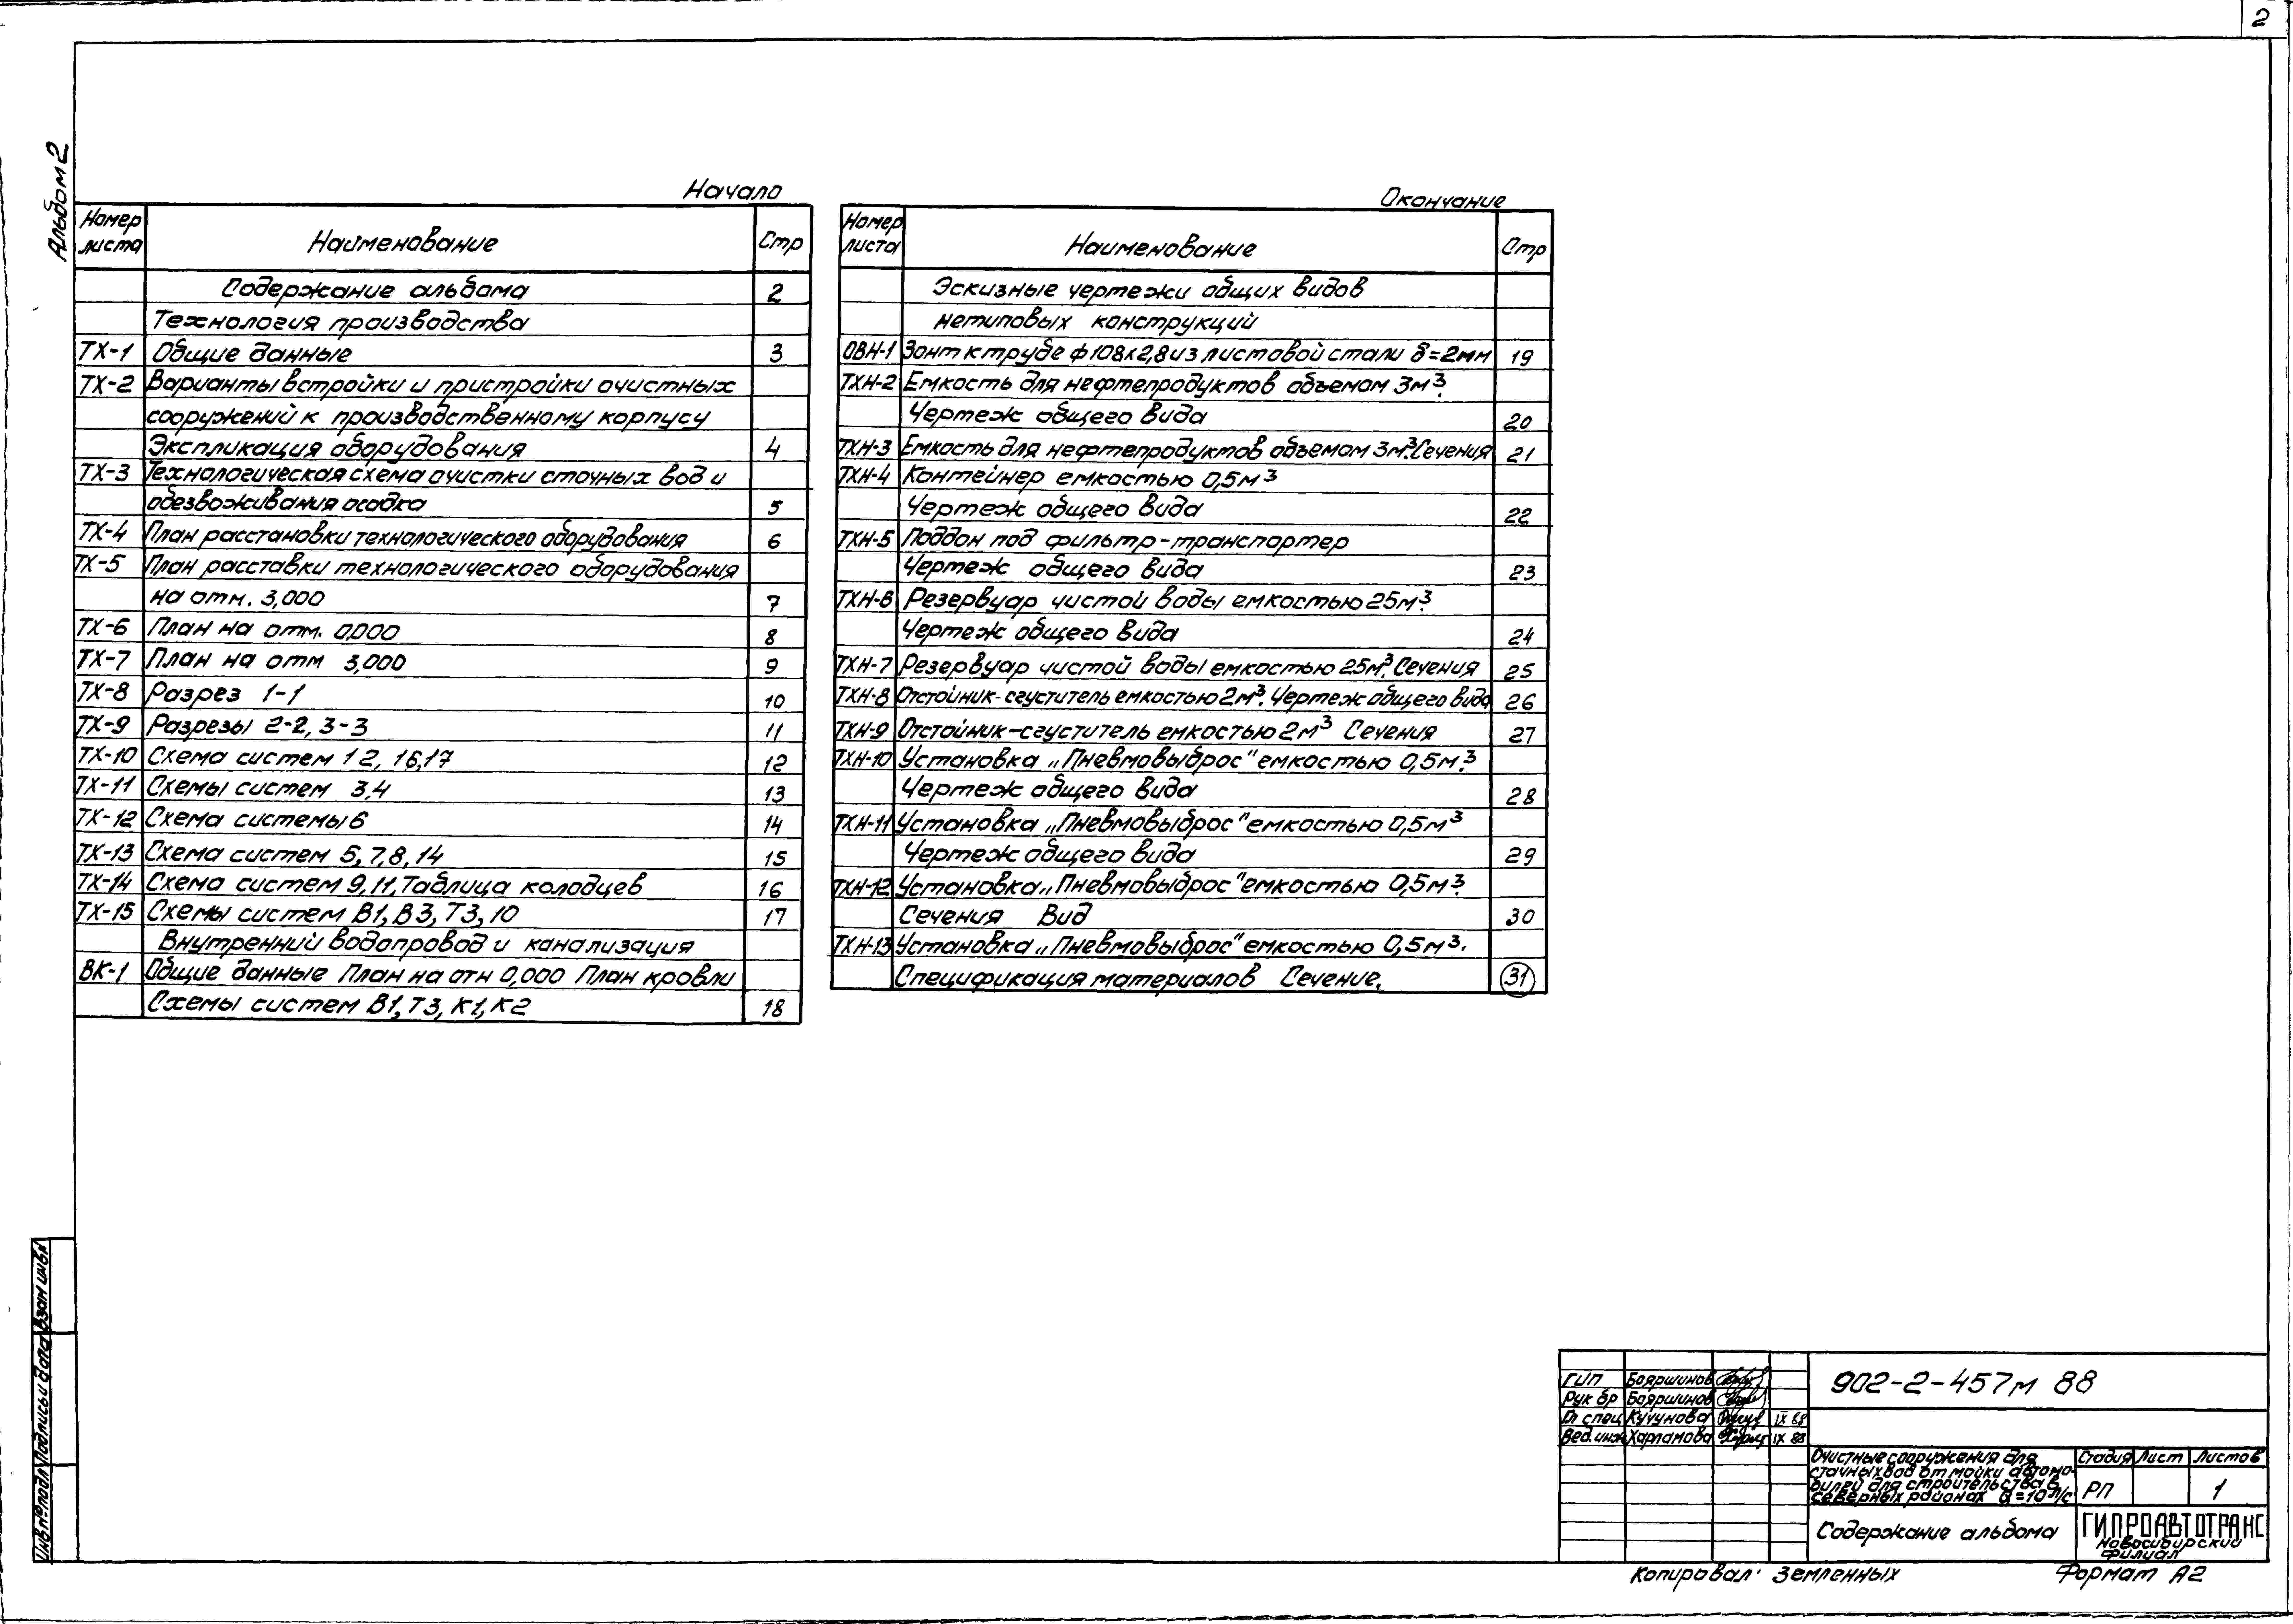 2
Альбом 2
Начало
Номер листа Наименование Стр
Содержание альбома 2
Технология производства
ТХ-1 Общие данные 3
ТХ-2 Варианты встройки и пристройки очистных
сооружений к производственному корпусу
Экспликация оборудования 4
ТХ-3 Технологическая схема очистки сточных вод и
обезвоживания осадка 5
ТХ-4 План расстановки технологического оборудования 6
ТХ-5 План расставки технологического оборудования
на отм. 3,000 7
ТХ-6 План на отм. 0,000 8
ТХ-7 План на отм 3,000 9
ТХ-8 Разрез 1-1 10
ТХ-9 Разрезы 2-2, 3-3 11
ТХ-10 Схема систем 1 2, 16,17 12
ТХ-11 Схемы систем 3,4 13
ТХ-12 Схема системы 6 14
ТХ-13 Схема систем 5, 7, 8, 14 15
ТХ-14 Схема систем 9, 11. Таблица колодцев 16
ТХ-15 Схемы систем В1, В3, Т3, 10 17
Внутренний водопровод и канализация
ВК-1 Общие данные План на отм 0,000 План кровли
Схемы систем В1, Т3, К1, К2 18
Окончание
Номер листа Наименование Стр
Эскизные чертежи общих видов
нетиповых конструкций
ОВН-1 Зонт к трубе ф 108х2,8 из листовой стали δ=2мм 19
ТХН-2 Емкость для нефтепродуктов объемом 3м³.
Чертеж общего вида 20
ТХН-3 Емкость для нефтепродуктов объемом 3м³. Сечения 21
ТХН-4 Контейнер емкостью 0,5м³
Чертеж общего вида 22
ТХН-5 Поддон под фильтр-транспортер
Чертеж общего вида 23
ТХН-6 Резервуар чистой воды емкостью 25м³.
Чертеж общего вида 24
ТХН-7 Резервуар чистой воды емкостью 25м³. Сечения 25
ТХН-8 Отстойник-сгуститель емкостью 2м³. Чертеж общего вида 26
ТХН-9 Отстойник-сгуститель емкостью 2м³ Сечения 27
ТХН-10 Установка „Пневмовыброс" емкостью 0,5м³.
Чертеж общего вида 28
ТХН-11 Установка „Пневмовыброс" емкостью 0,5м³
Чертеж общего вида 29
ТХН-12 Установка „Пневмовыброс" емкостью 0,5м³.
Сечения Вид 30
ТХН-13 Установка „Пневмовыброс" емкостью 0,5м³.
Спецификация материалов Сечение. 31
Инв № подл Подпись и дата Взам инв №
ГИП Бояршинов
Рук бр Бояршинов
Гл спец Кучунова IX 88
Вед. инж Харламова IX 88
902-2-457м 88
Очистные сооружения для
сточных вод от мойки автомо-
билей для строительства в
северных районах Q=10 л/с
Стадия Лист Листов
РП 1
Содержание альбома
ГИПРОАВТОТРАНС
Новосибирский
филиал
Копировал: Земленных
Формат А2